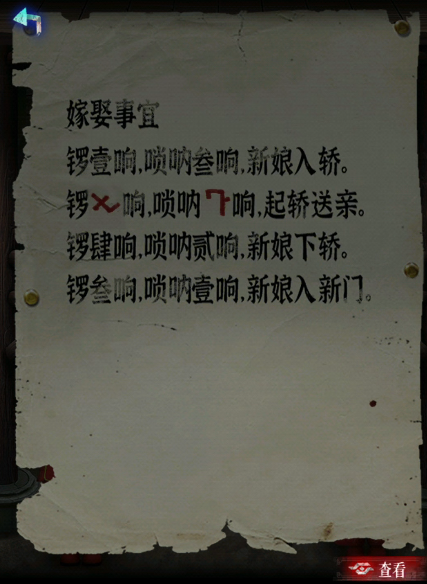 嫁娶事宜
锣壹响,唢呐叁响,新娘入轿。
锣〤响,唢呐〧响,起轿送亲。
锣肆响,唢呐贰响,新娘下轿。
锣叁响,唢呐壹响,新娘入新门。
查看